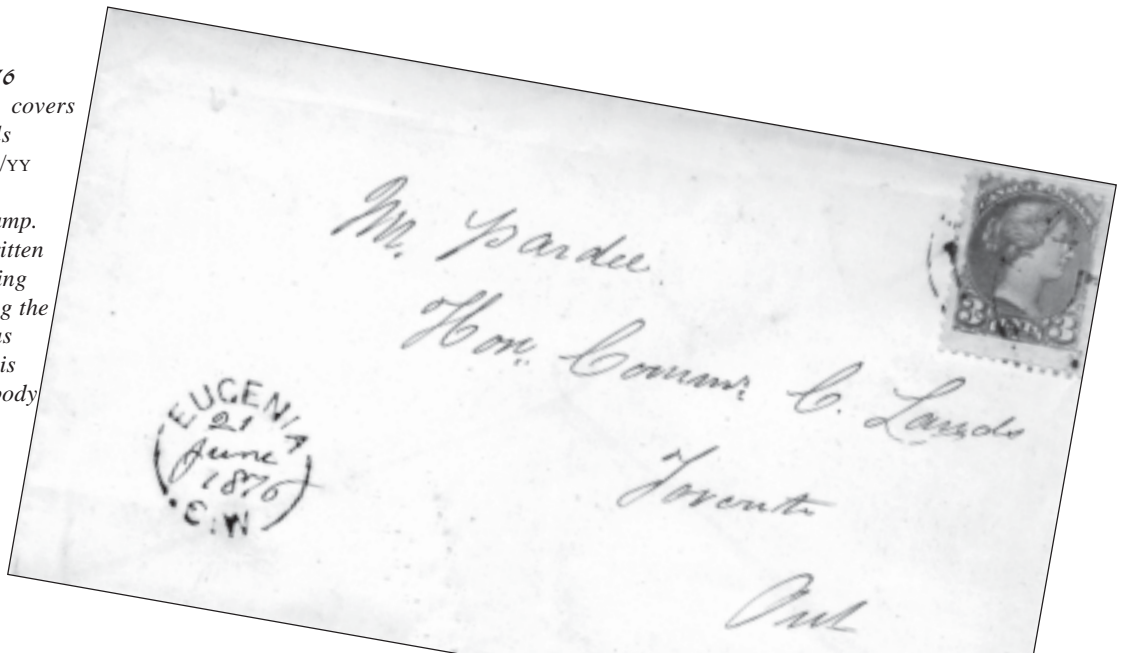 76
covers
ls
/YY
amp.
itten
ing
g the
as
is
body
Mr. Pardee
Hon. Commr. C. Lands
Toronto
Ont
EUGENIA
21
June
1876
C.W
3 CENTS 3